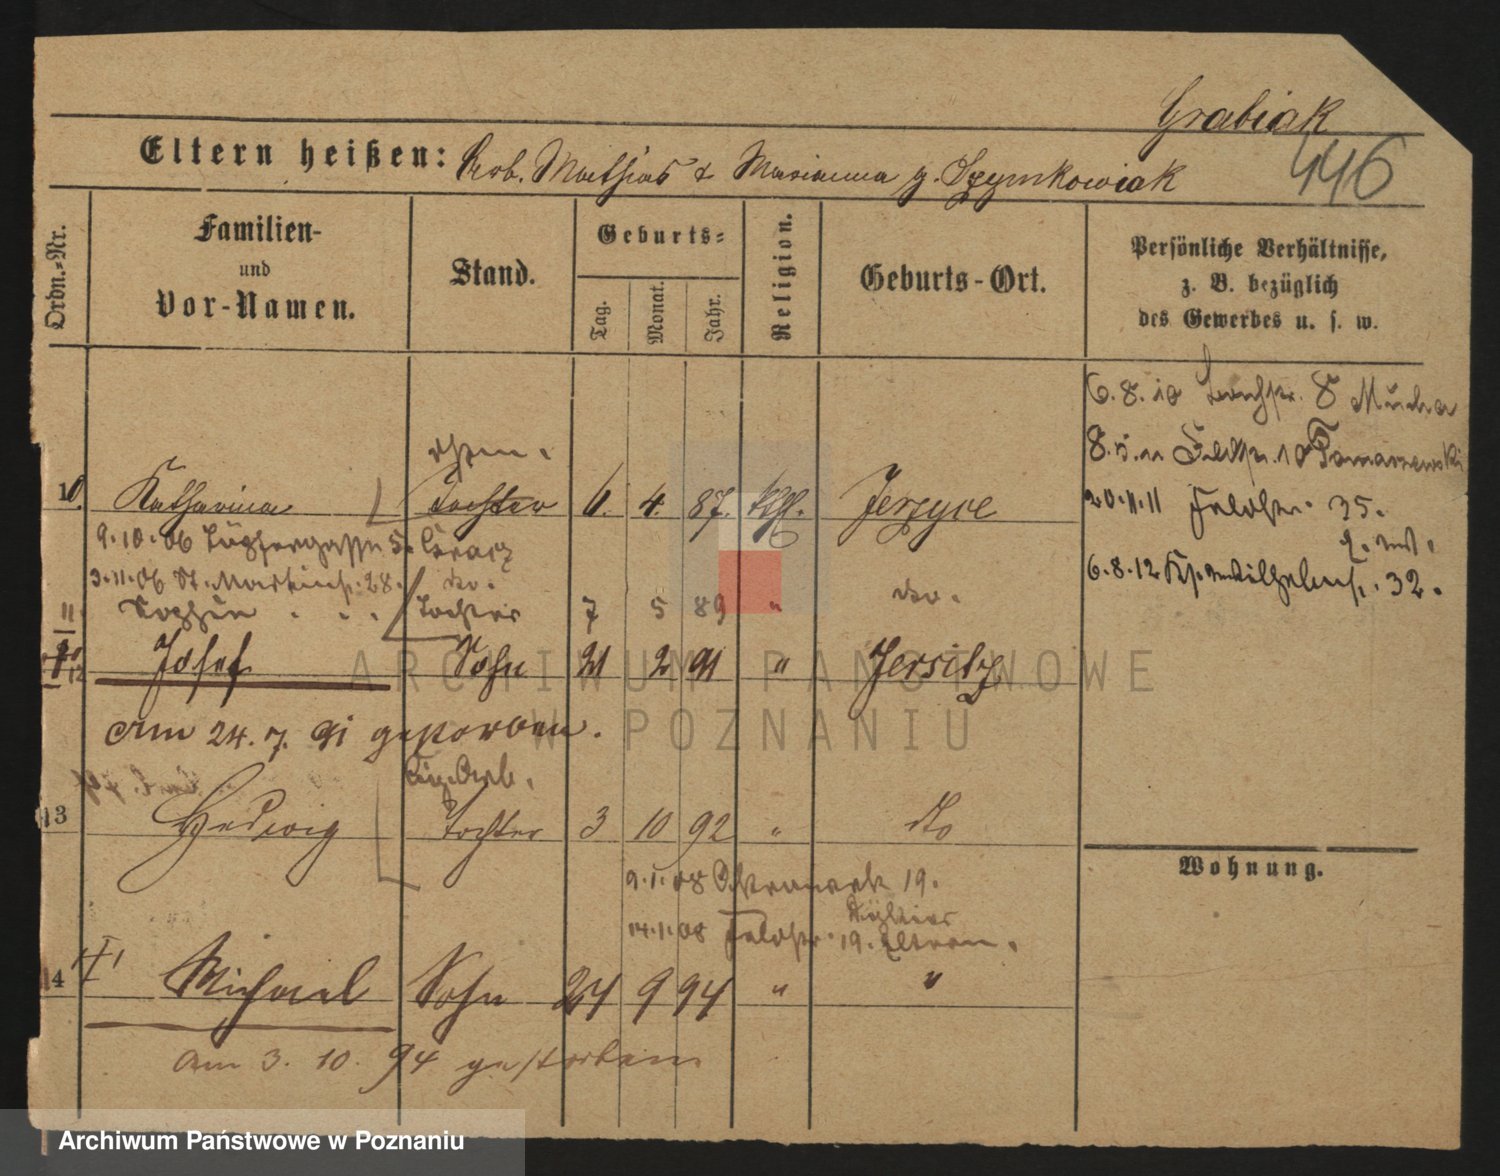 Grabiak
446
Eltern heißen: Arb. Mathias & Marianna g. Szymkowiak
Ordn.-Nr.
Familien-
und
Vor-Namen.
Stand.
Geburts-
Tag.
Monat.
Jahr.
Religion.
Geburts-Ort.
Persönliche Verhältnisse,
z. B. bezüglich
des Gewerbes u. s. w.
6.8.10 8 Mucha
8.5.11 10 Tomaszewski
20.11.11 Feldstr. 35.
6.8.12 32.
10. Katharina Tochter 6. 4. 87. kath. Jerzyce
9.10.06 5.
3.11.06 St. Martinstr. 28. do.
11. Sophie Tochter 7 5 89 " do.
12 Josef Sohn 21 2 91 " Jersitz
Am 24. 7. 91 gestorben.
Cig. Arb.
13 Hedwig Tochter 3 10 92 " do
9.1.08 19.
14.1.08 Feldstr. 19. Eltern.
14 Michael Sohn 24 9 94 " "
am 3. 10. 94 gestorben
Wohnung.
ARCHIWUM PAŃSTWOWE
W POZNANIU
Archiwum Państwowe w Poznaniu